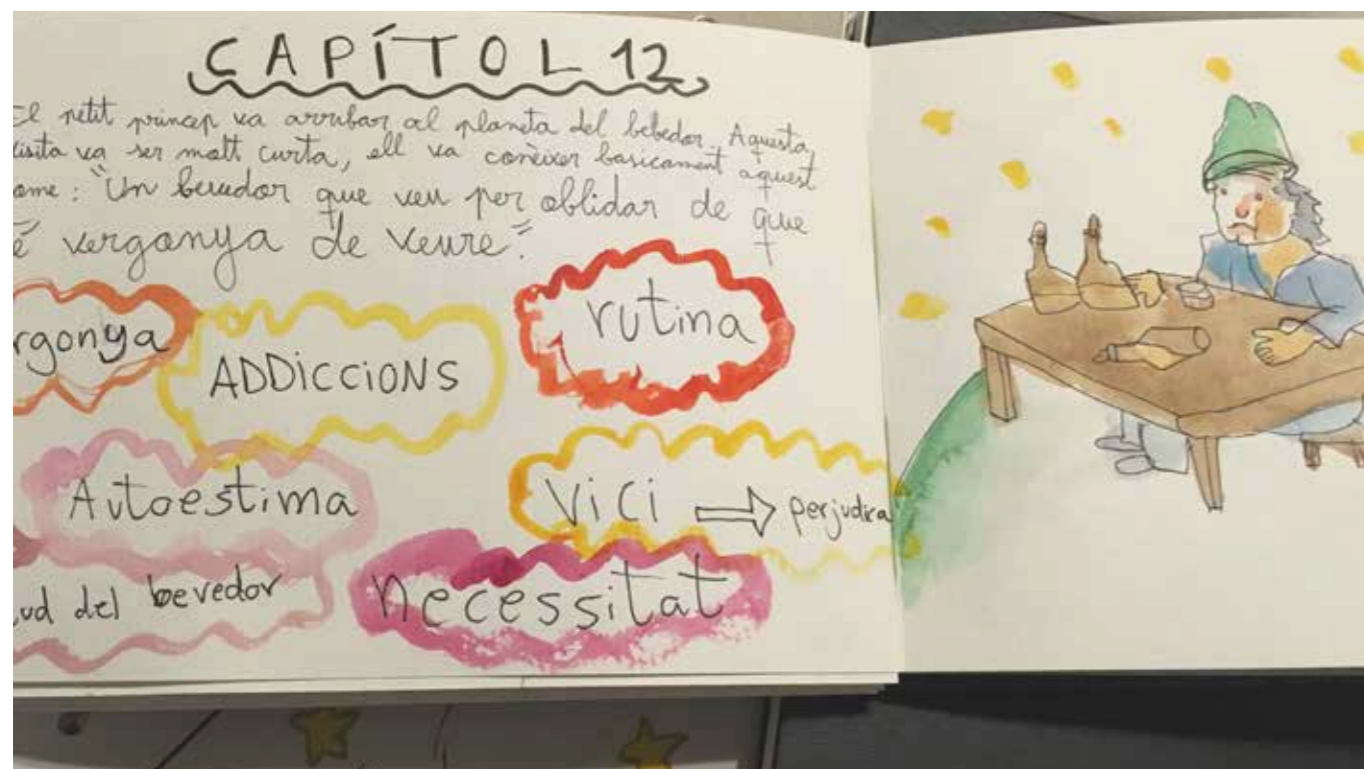 CAPÍTOL 12
El petit príncep va arribar al planeta del bebedor. Aquesta
visita va ser molt curta, ell va conèixer basicament aquest
ome: "Un bevedor que veu per oblidar de que
é vergonya de veure".
rgonya
ADDICCIONS
rutina
Autoestima
Vici ⇒ perjudica
ud del bevedor
necessitat